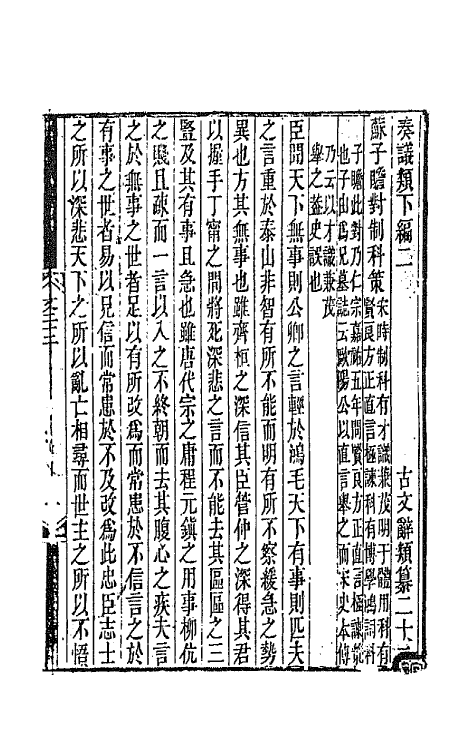 奏議類下編二　古文辭類纂二十
蘇子瞻對制科策
宋時制科有才識兼茂明於體用科有
賢良方正直言極諫科有博學鴻詞科
子瞻此對乃仁宗嘉祐五年問賢良方正直言極諫策
也子由為兄墓誌云歐陽公以直言舉之而宋史本傳
乃云以才識兼茂
舉之蓋史誤也
臣聞天下無事則公卿之言輕於鴻毛天下有事則匹夫
之言重於泰山非智有所不能而明有所不察緩急之勢
異也方其無事也雖齊桓之深信其臣管仲之深得其君
以握手丁甯之間將死深悲之言而不能去其區區之三
豎及其有事且急也雖唐代宗之庸程元鎮之用事柳伉
之賤且疎而一言以入之不終朝而去其腹心之疾夫言
之於無事之世者足以有所改為而常患於不信言之於
有事之世者易以見信而常患於不及改為此忠臣志士
之所以深悲天下之所以亂亡相尋而世主之所以不悟